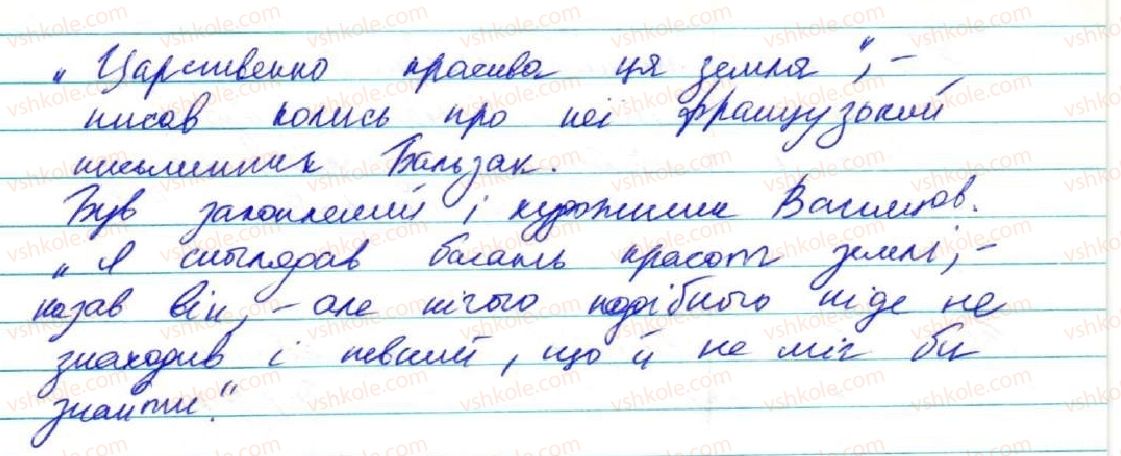 „Царственно красива ця земля", –
писав колись про неї французький
письменник Бальзак.
Був захоплений і художник Васнецов.
„Я споглядав багать красот землі, –
казав він, – але нічого подібного ніде не
знаходив і певний, що й не міг би
знайти."